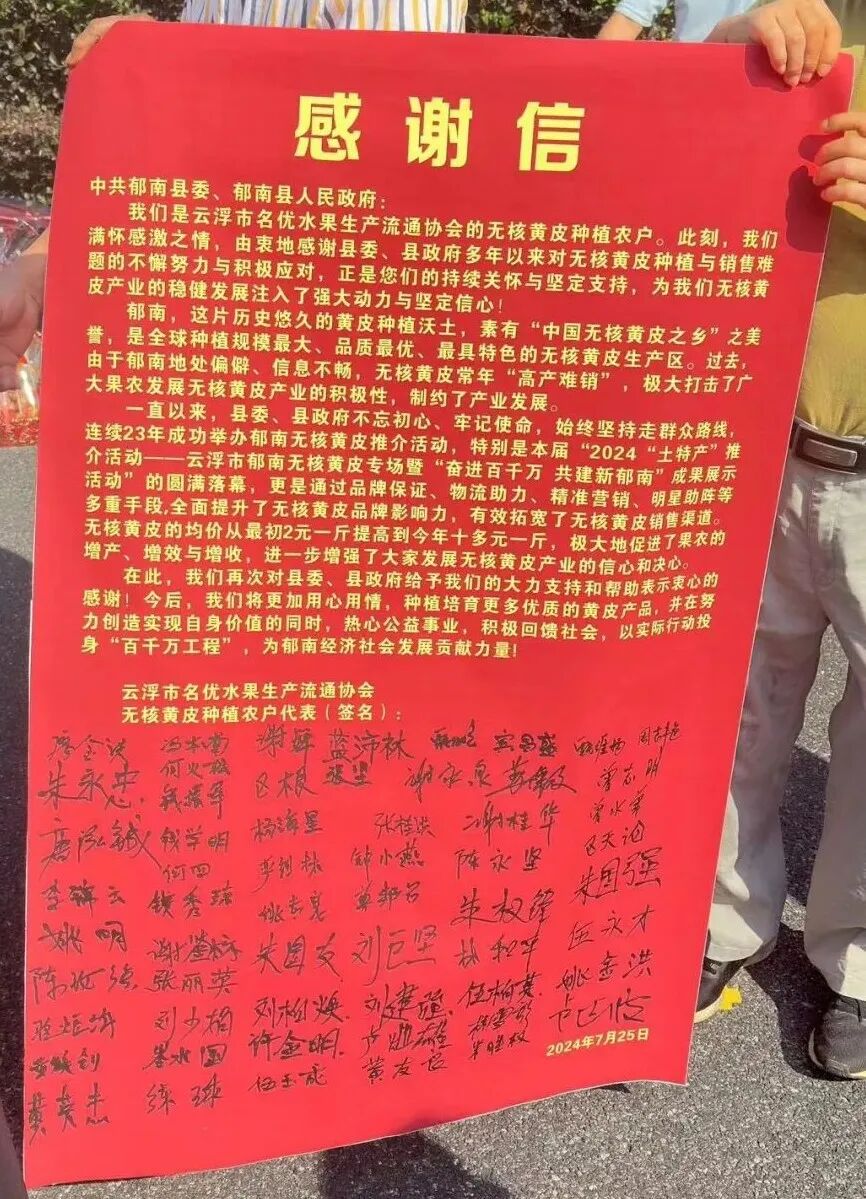 感谢信
中共郁南县委、郁南县人民政府：
我们是云浮市名优水果生产流通协会的无核黄皮种植农户。此刻，我们
满怀感激之情，由衷地感谢县委、县政府多年以来对无核黄皮种植与销售难
题的不懈努力与积极应对，正是您们的持续关怀与坚定支持，为我们无核黄
皮产业的稳健发展注入了强大动力与坚定信心！
郁南，这片历史悠久的黄皮种植沃土，素有“中国无核黄皮之乡”之美
誉，是全球种植规模最大、品质最优、最具特色的无核黄皮生产区。过去，
由于郁南地处偏僻、信息不畅，无核黄皮常年“高产难销”，极大打击了广
大果农发展无核黄皮产业的积极性，制约了产业发展。
一直以来，县委、县政府不忘初心、牢记使命，始终坚持走群众路线，
连续23年成功举办郁南无核黄皮推介活动，特别是本届“2024“土特产”推
介活动——云浮市郁南无核黄皮专场暨“奋进百千万 共建新郁南”成果展示
活动”的圆满落幕，更是通过品牌保证、物流助力、精准营销、明星助阵等
多重手段,全面提升了无核黄皮品牌影响力，有效拓宽了无核黄皮销售渠道。
无核黄皮的均价从最初2元一斤提高到今年十多元一斤，极大地促进了果农的
增产、增效与增收，进一步增强了大家发展无核黄皮产业的信心和决心。
在此，我们再次对县委、县政府给予我们的大力支持和帮助表示衷心的
感谢！今后，我们将更加用心用情，种植培育更多优质的黄皮产品，并在努
力创造实现自身价值的同时，热心公益事业，积极回馈社会，以实际行动投
身“百千万工程”，为郁南经济社会发展贡献力量！
云浮市名优水果生产流通协会
无核黄皮种植农户代表（签名）：
蓝沛林
朱永忠 区根 张坚 谢永泉 曾志明
钱学明 杨海星 张桂洪 谢桂华 曾水荣
何四 钟小燕 陈永坚 区天论
李锦云 钱秀琼 朱国强
姚明 朱国友 刘巨坚 林和平 伍永才
张丽英 姚金洪
刘少梅 刘柏焕 刘建强 伍柏英
许金明
练球 伍玉龙 黄友良
2024年7月25日